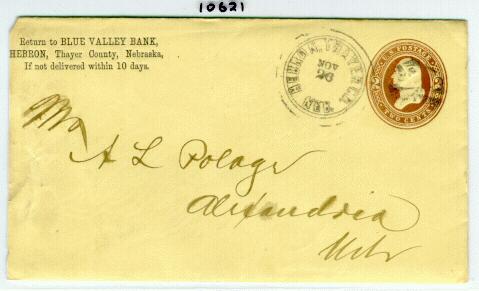 10621
Return to BLUE VALLEY BANK,
HEBRON, Thayer County, Nebraska,
If not delivered within 10 days.
HEBRON, THAYER CO. NEB
NOV
U.S. POSTAGE
TWO CENTS
A L Polage
Alexandria
Neb